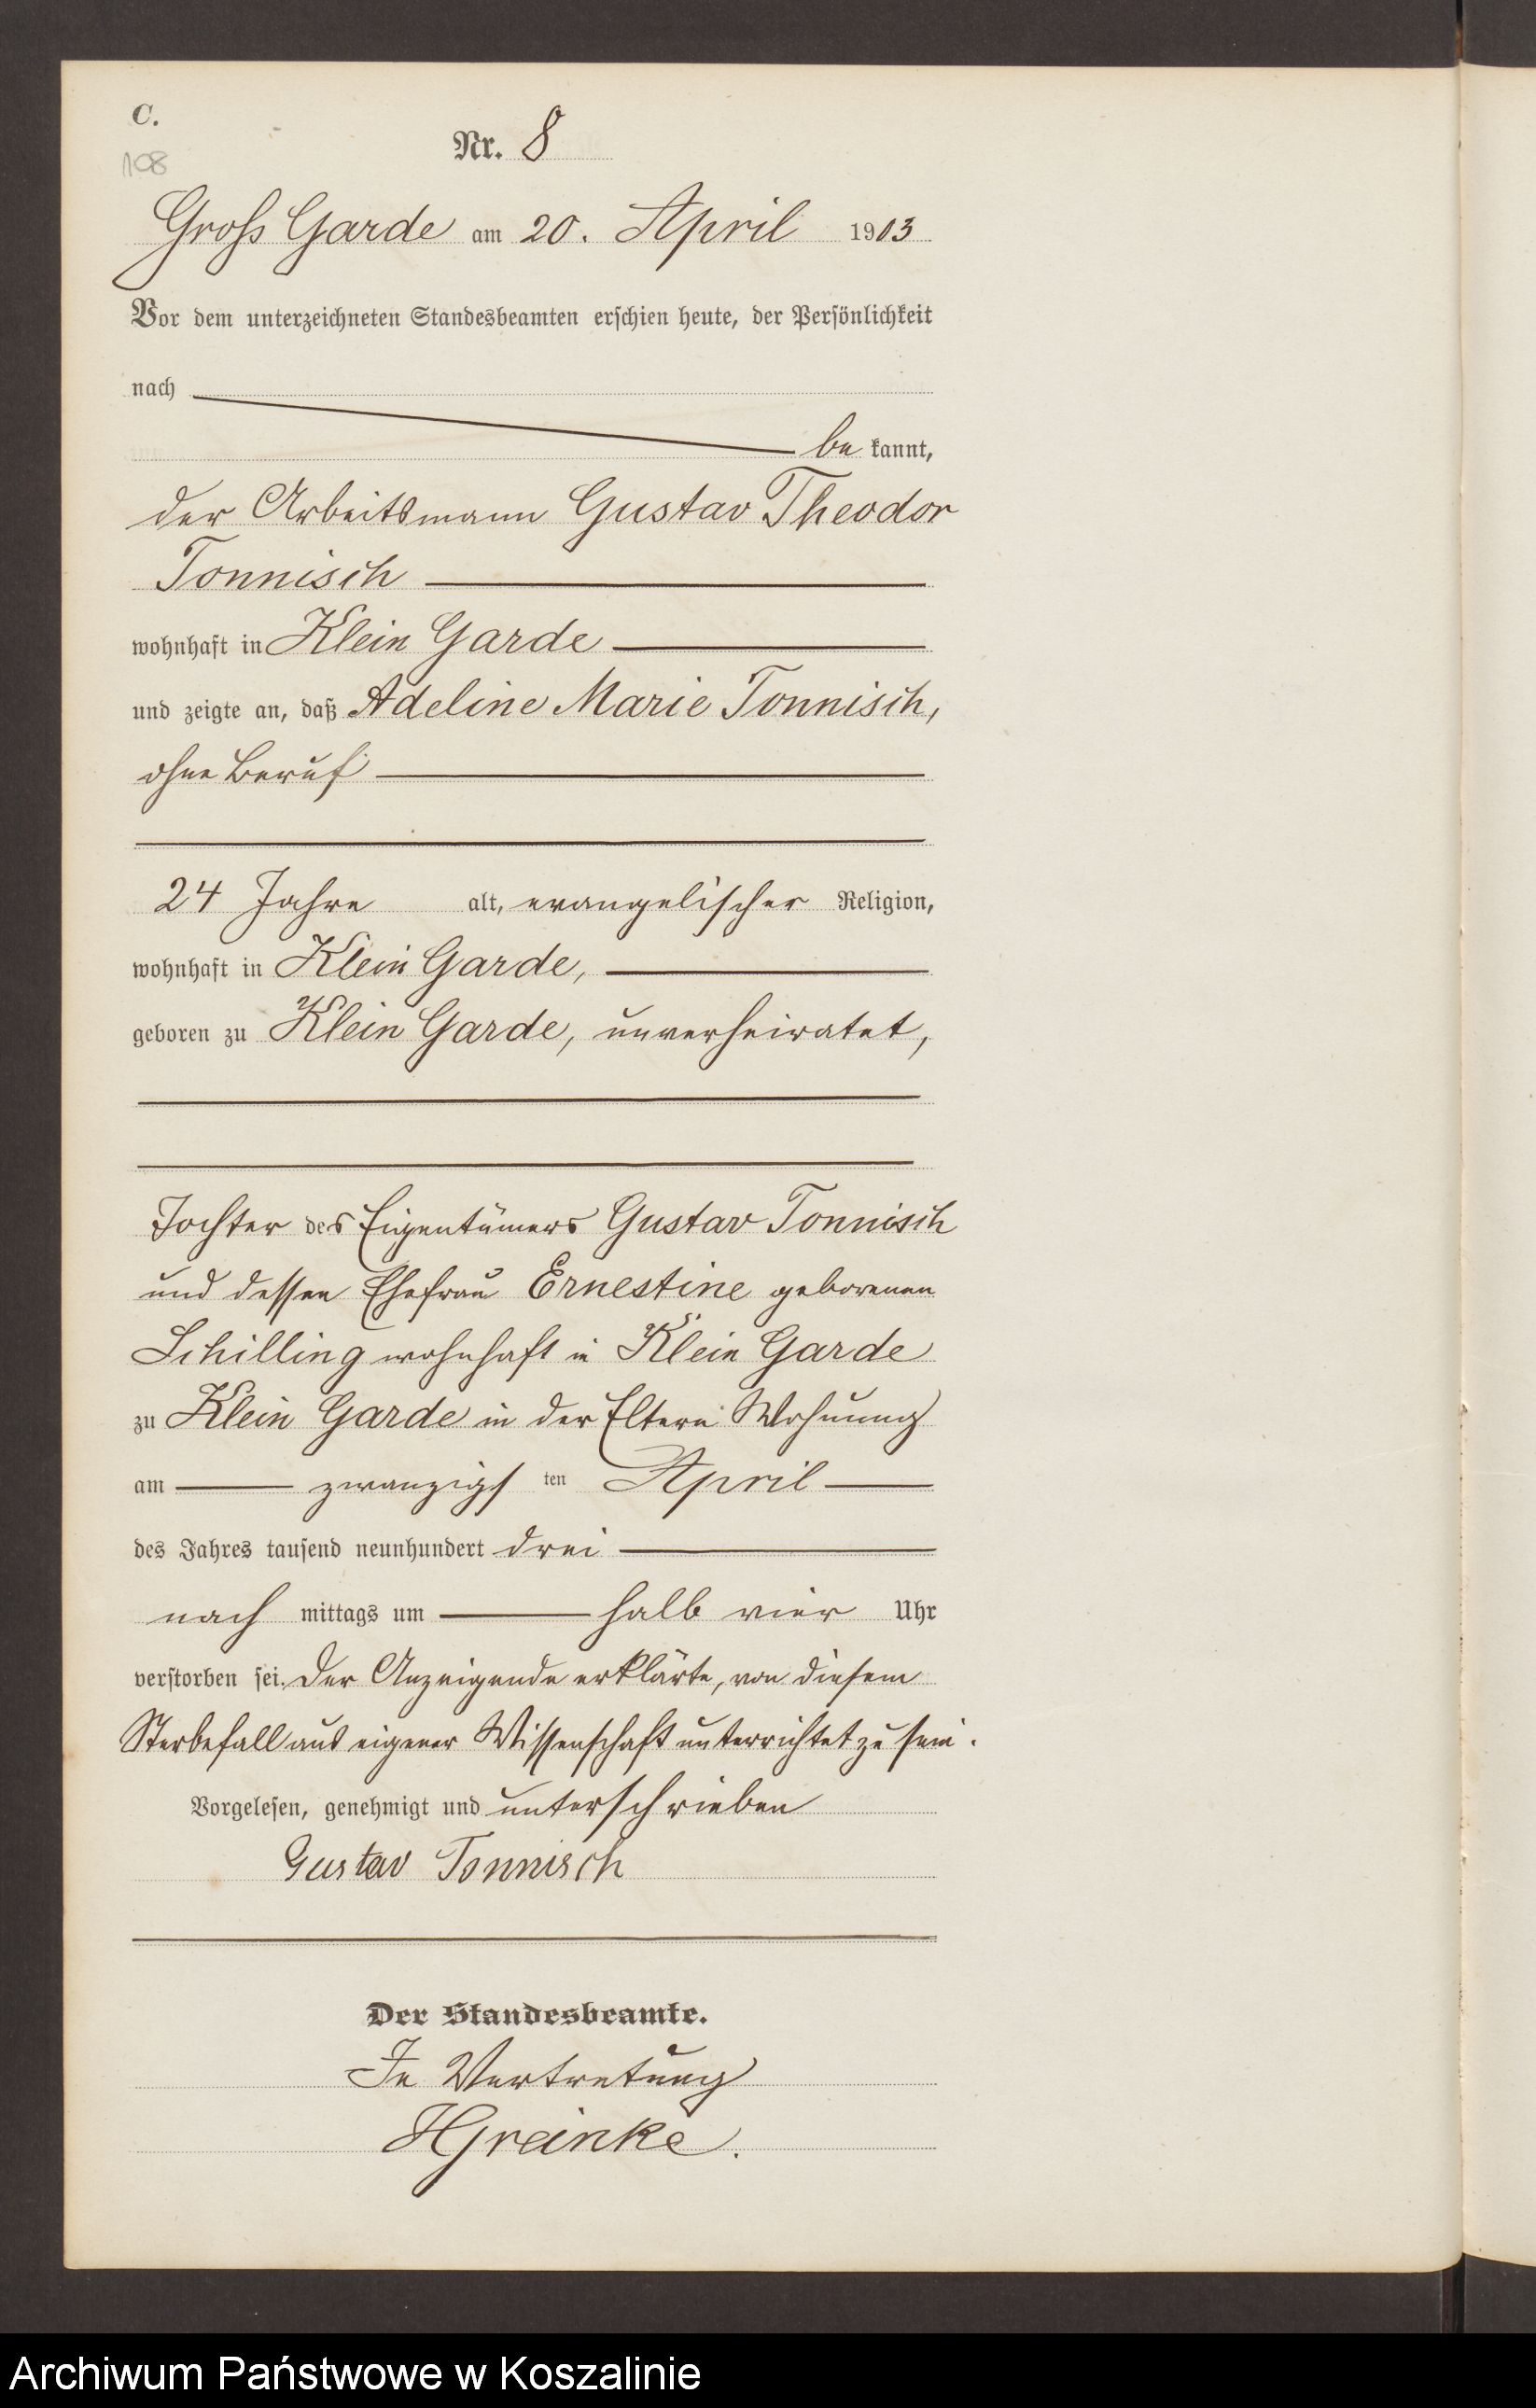 C.
108
Nr. 8
Gross Garde am 20. April 1903
Vor dem unterzeichneten Standesbeamten erschien heute, der Persönlichkeit
nach
be kannt,
der Arbeitsmann Gustav Theodor
Tonnisch
wohnhaft in Klein Garde
und zeigte an, daß Adeline Marie Tonnisch,
ohne Beruf
24 Jahre alt, evangelischer Religion,
wohnhaft in Klein Garde,
geboren zu Klein Garde, unverheiratet,
Tochter des Eigentümers Gustav Tonnisch
und dessen Ehefrau Ernestine geborenen
Schilling wohnhaft in Klein Garde
zu Klein Garde in der Eltern Wohnung
am zwanzigs ten April
des Jahres tausend neunhundert drei
nach mittags um halb vier Uhr
verstorben sei. Der Anzeigende erklärte, von diesem
Sterbefall aus eigener Wissenschaft unterrichtet zu sein.
Vorgelesen, genehmigt und unterschrieben
Gustav Tonnisch
Der Standesbeamte.
In Vertretung
HGreinke.
Archiwum Państwowe w Koszalinie